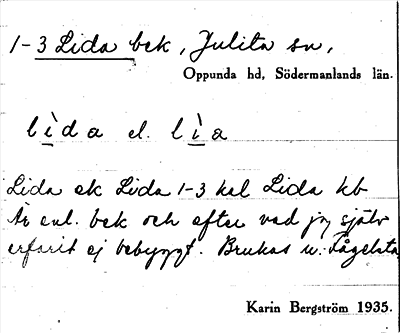 1-3 Lida bek, Julita sn,
Oppunda hd, Södermanlands län.
lìda el. lìa
Lida ek Lida 1-3 kal Lida kb
Är enl. bek och efter vad jag själv
erfarit ej bebyggt. Brukas u. Fågelsta
Karin Bergström 1935.